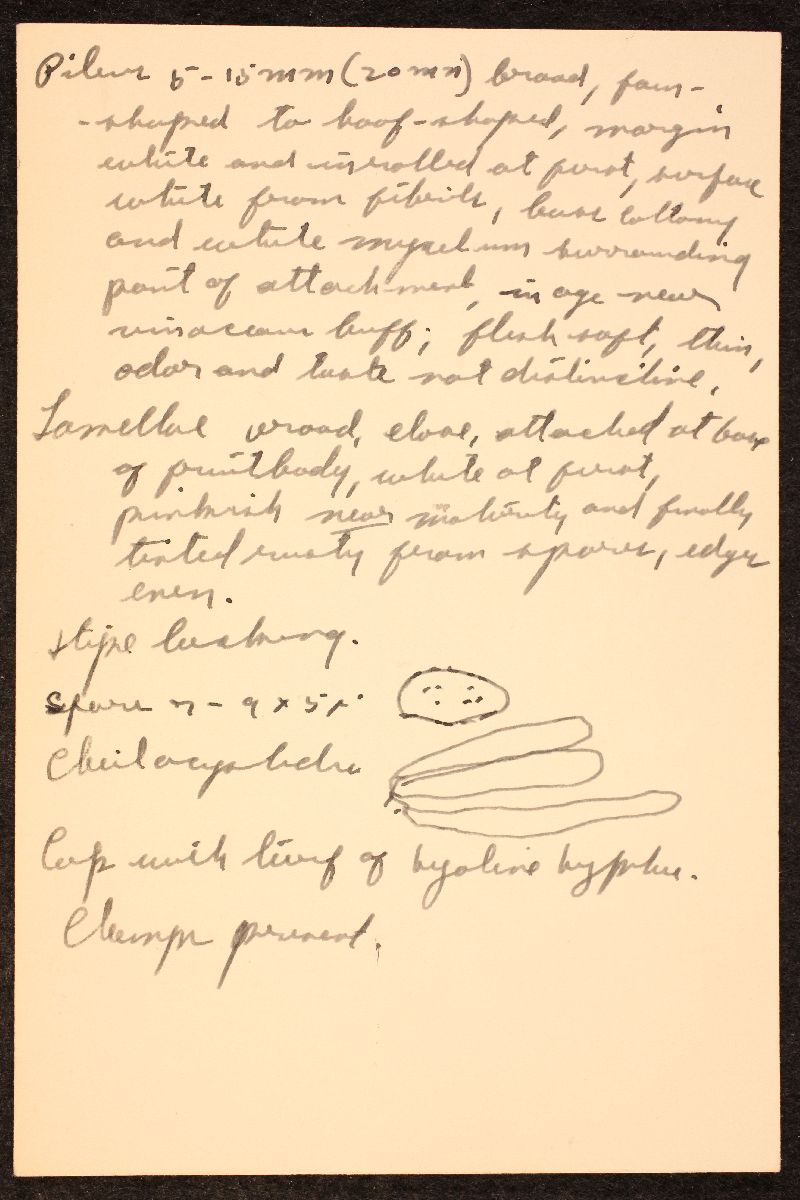 Pileus 5-15 mm (20 mm) broad, fan-
-shaped to hoof-shaped, margin
white and inrolled at first, surface
white from fibrils, base cottony
and white mycelium surrounding
point of attachment, in age near
vinaceous buff; flesh soft, thin,
odor and taste not distinctive.
Lamellae broad, close, attached at base
of fruitbody, white at first,
pinkish near maturity and finally
tinted rusty from spores, edges
even.
Stipe lacking.
Spores 7-9 x 5 µ.
Cheilocystidia
Cap with turf of hyaline hyphae.
Clamps present.